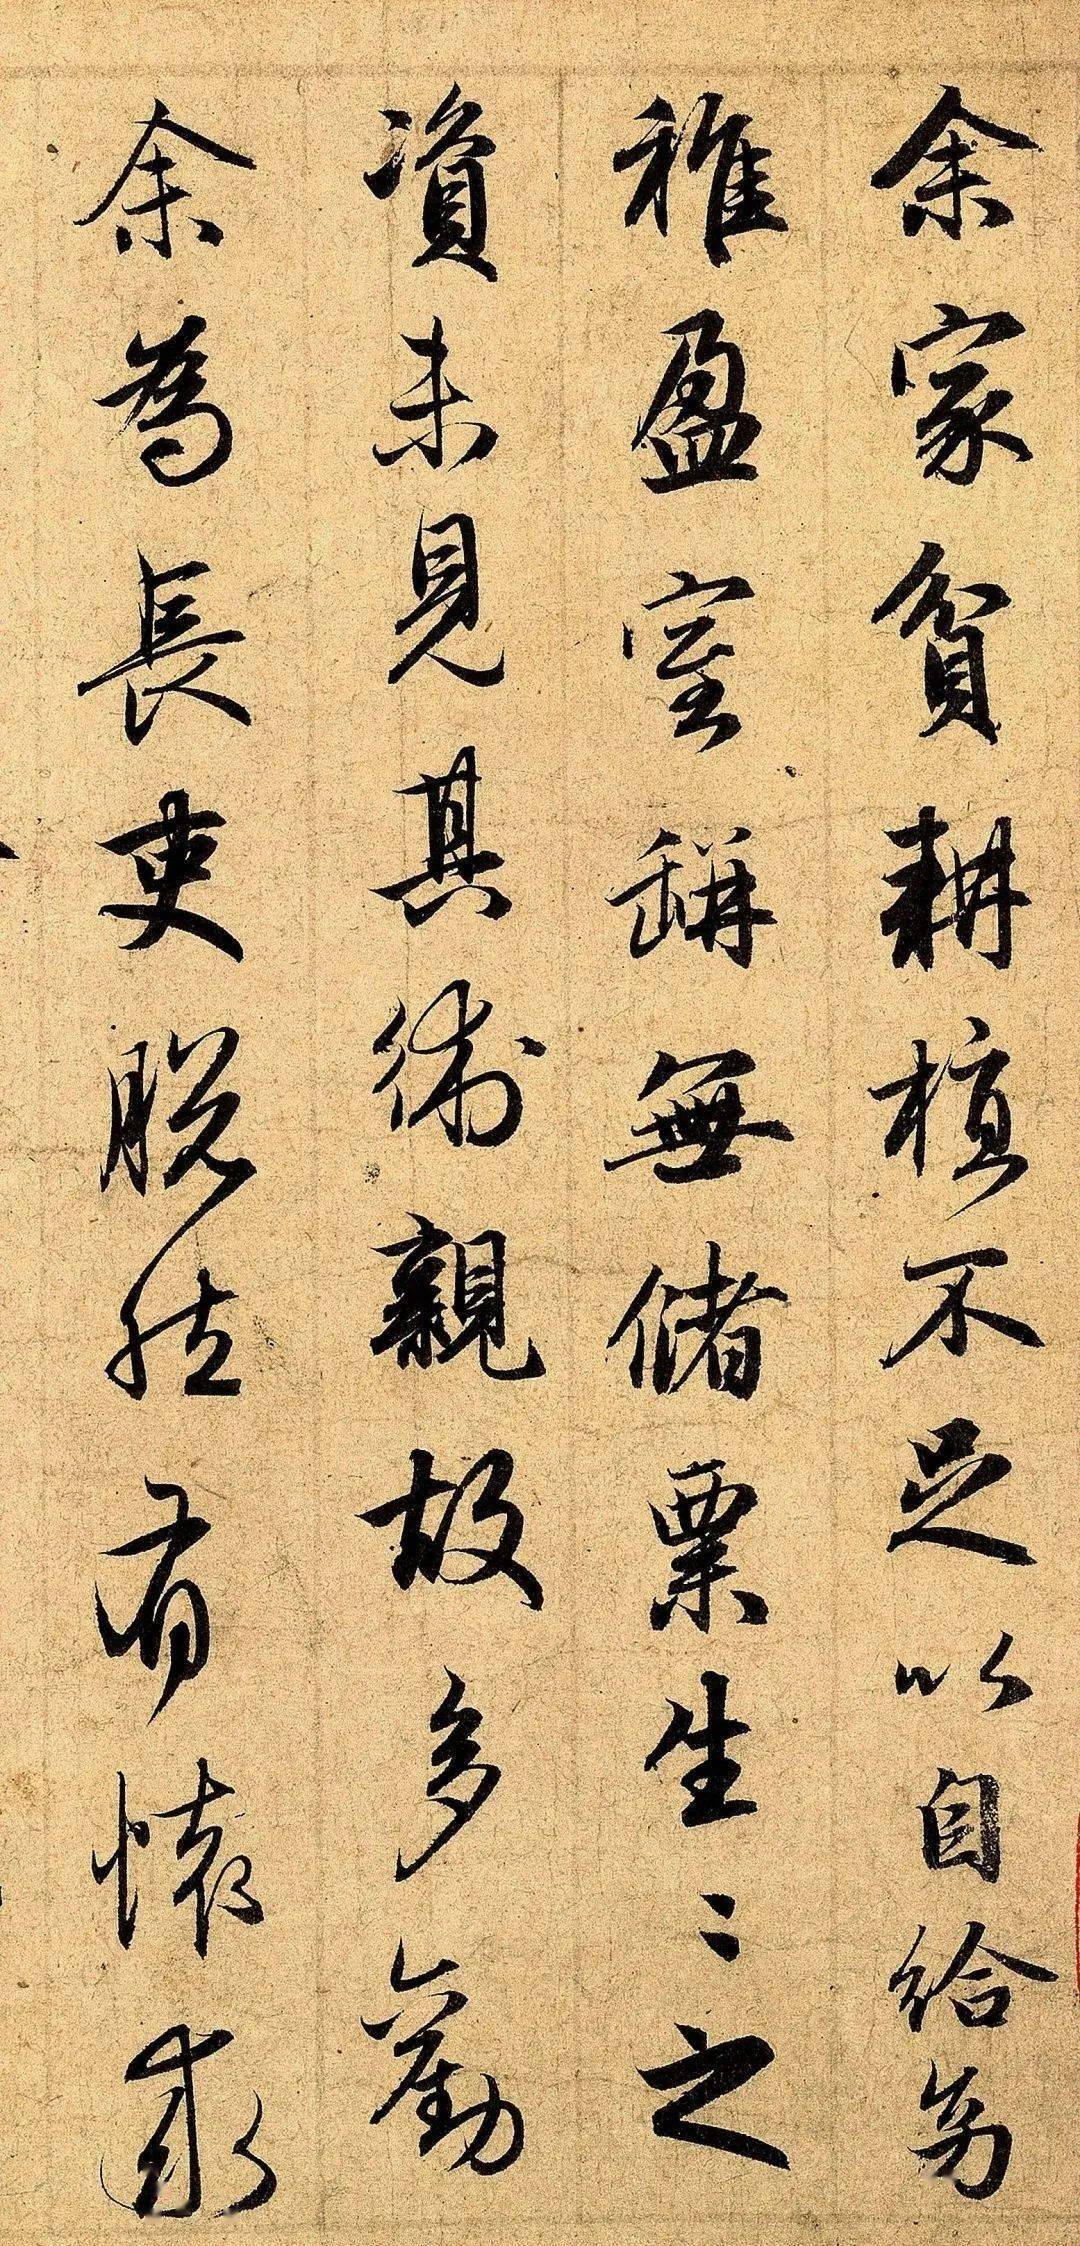 余家貧耕植不足以自給幼
稚盈室缾無儲粟生〻之
資未見其術親故多勸
余為長吏脱然有懷求